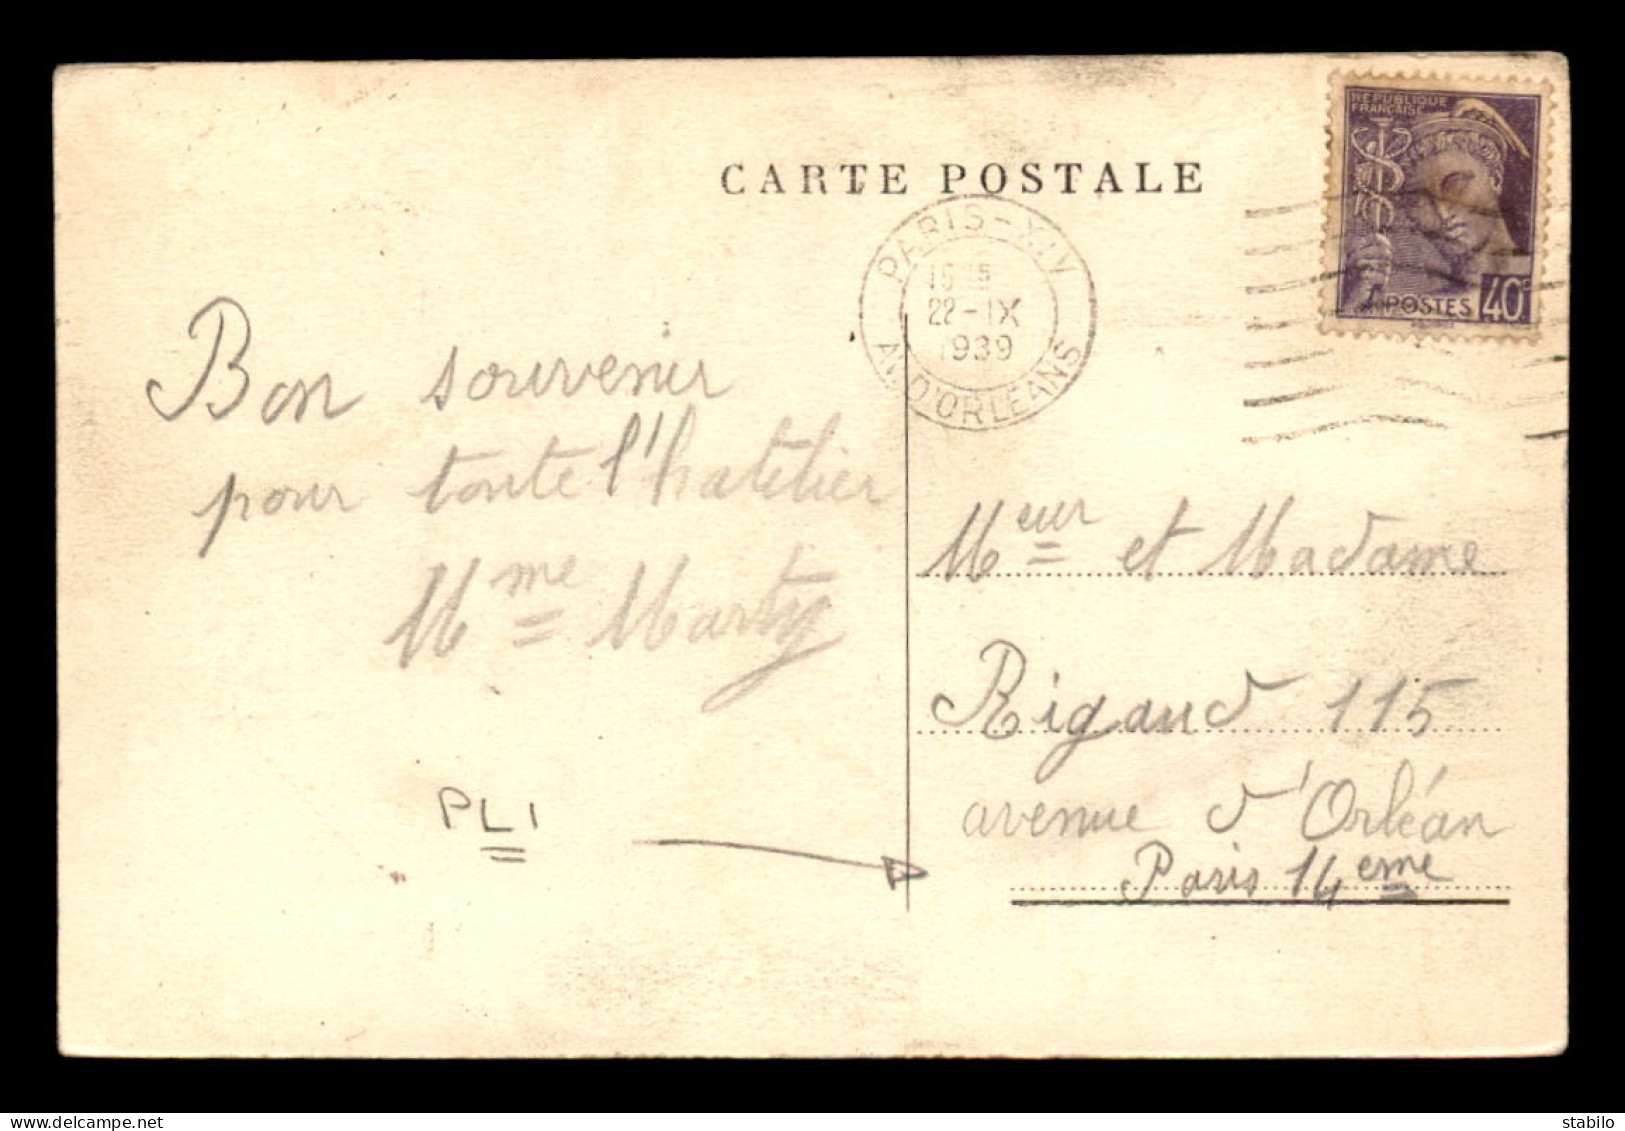 CARTE POSTALE
RÉPUBLIQUE
FRANÇAISE
POSTES 40c
PARIS-XIV
22-IX
1939
AV. D'ORLÉANS
Bon souvenir
pour toute l'hatelier
Mme Marty
PLI
Meur et Madame
Rigaud 115
avenue d'Orléan
Paris 14eme
stabilo